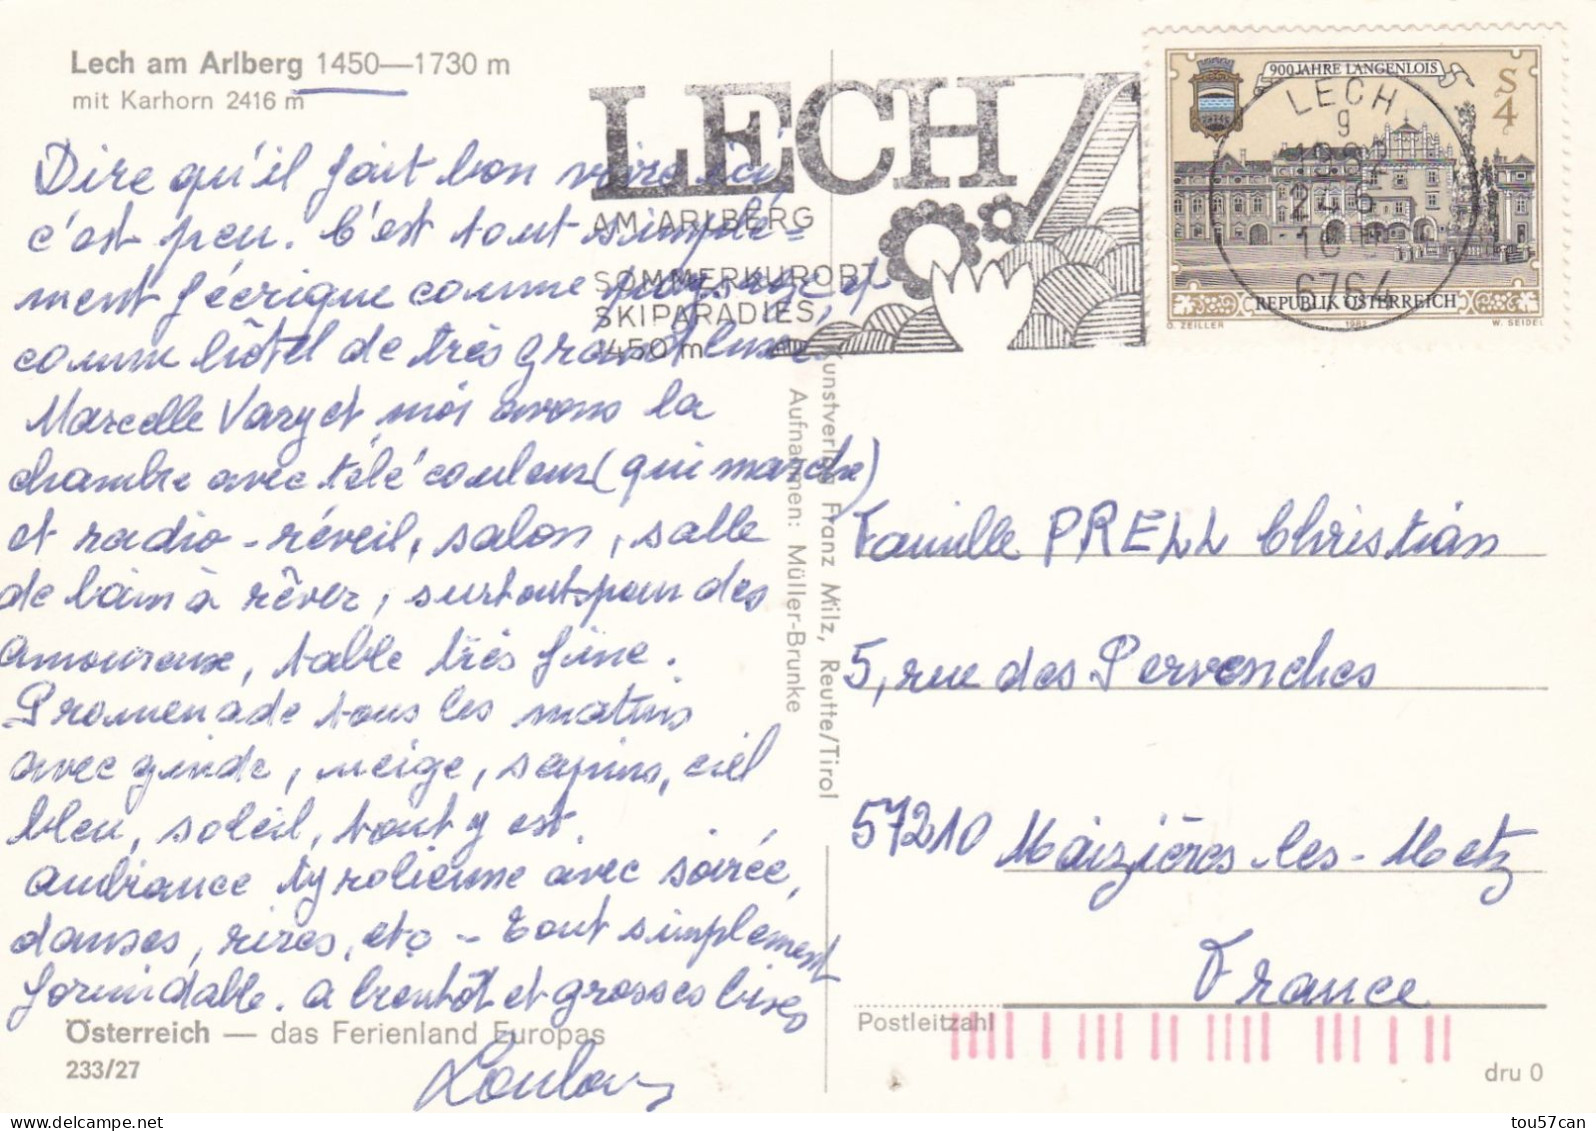 Lech am Arlberg 1450—1730 m
mit Karhorn 2416 m
Dire qu'il fait bon vivre ici,
c'est peu. C'est tout simple-
ment féerique comme paysage, et
comme hôtel de très grand luxe.
Marcelle Vary et moi avons la
chambre avec télé couleur (qui marche)
et radio-réveil, salon, salle
de bain à rêver, surtout pour des
amoureux, table très fine.
Promenade tous les matins
avec guide, neige, sapins, ciel
bleu, soleil, tout y est.
Ambiance tyrolienne avec soirée,
danses, rires, etc - Tout simplement
formidable. A bientôt et grosses bises
Loulou
Österreich — das Ferienland Europas
233/27
LECH
AM ARLBERG
SOMMERKURORT
SKIPARADIES
1450 m
900 JAHRE LANGENLOIS
S 4
REPUBLIK ÖSTERREICH
O. ZEILLER 1982 W. SEIDEL
LECH
9
6764
Kunstverlag Franz Milz, Reutte/Tirol
Aufnahmen: Müller-Brunke
Famille PRELL Christian
5, rue des Pervenches
57210 Maizières-les-Metz
France
Postleitzahl
dru 0
tou57can